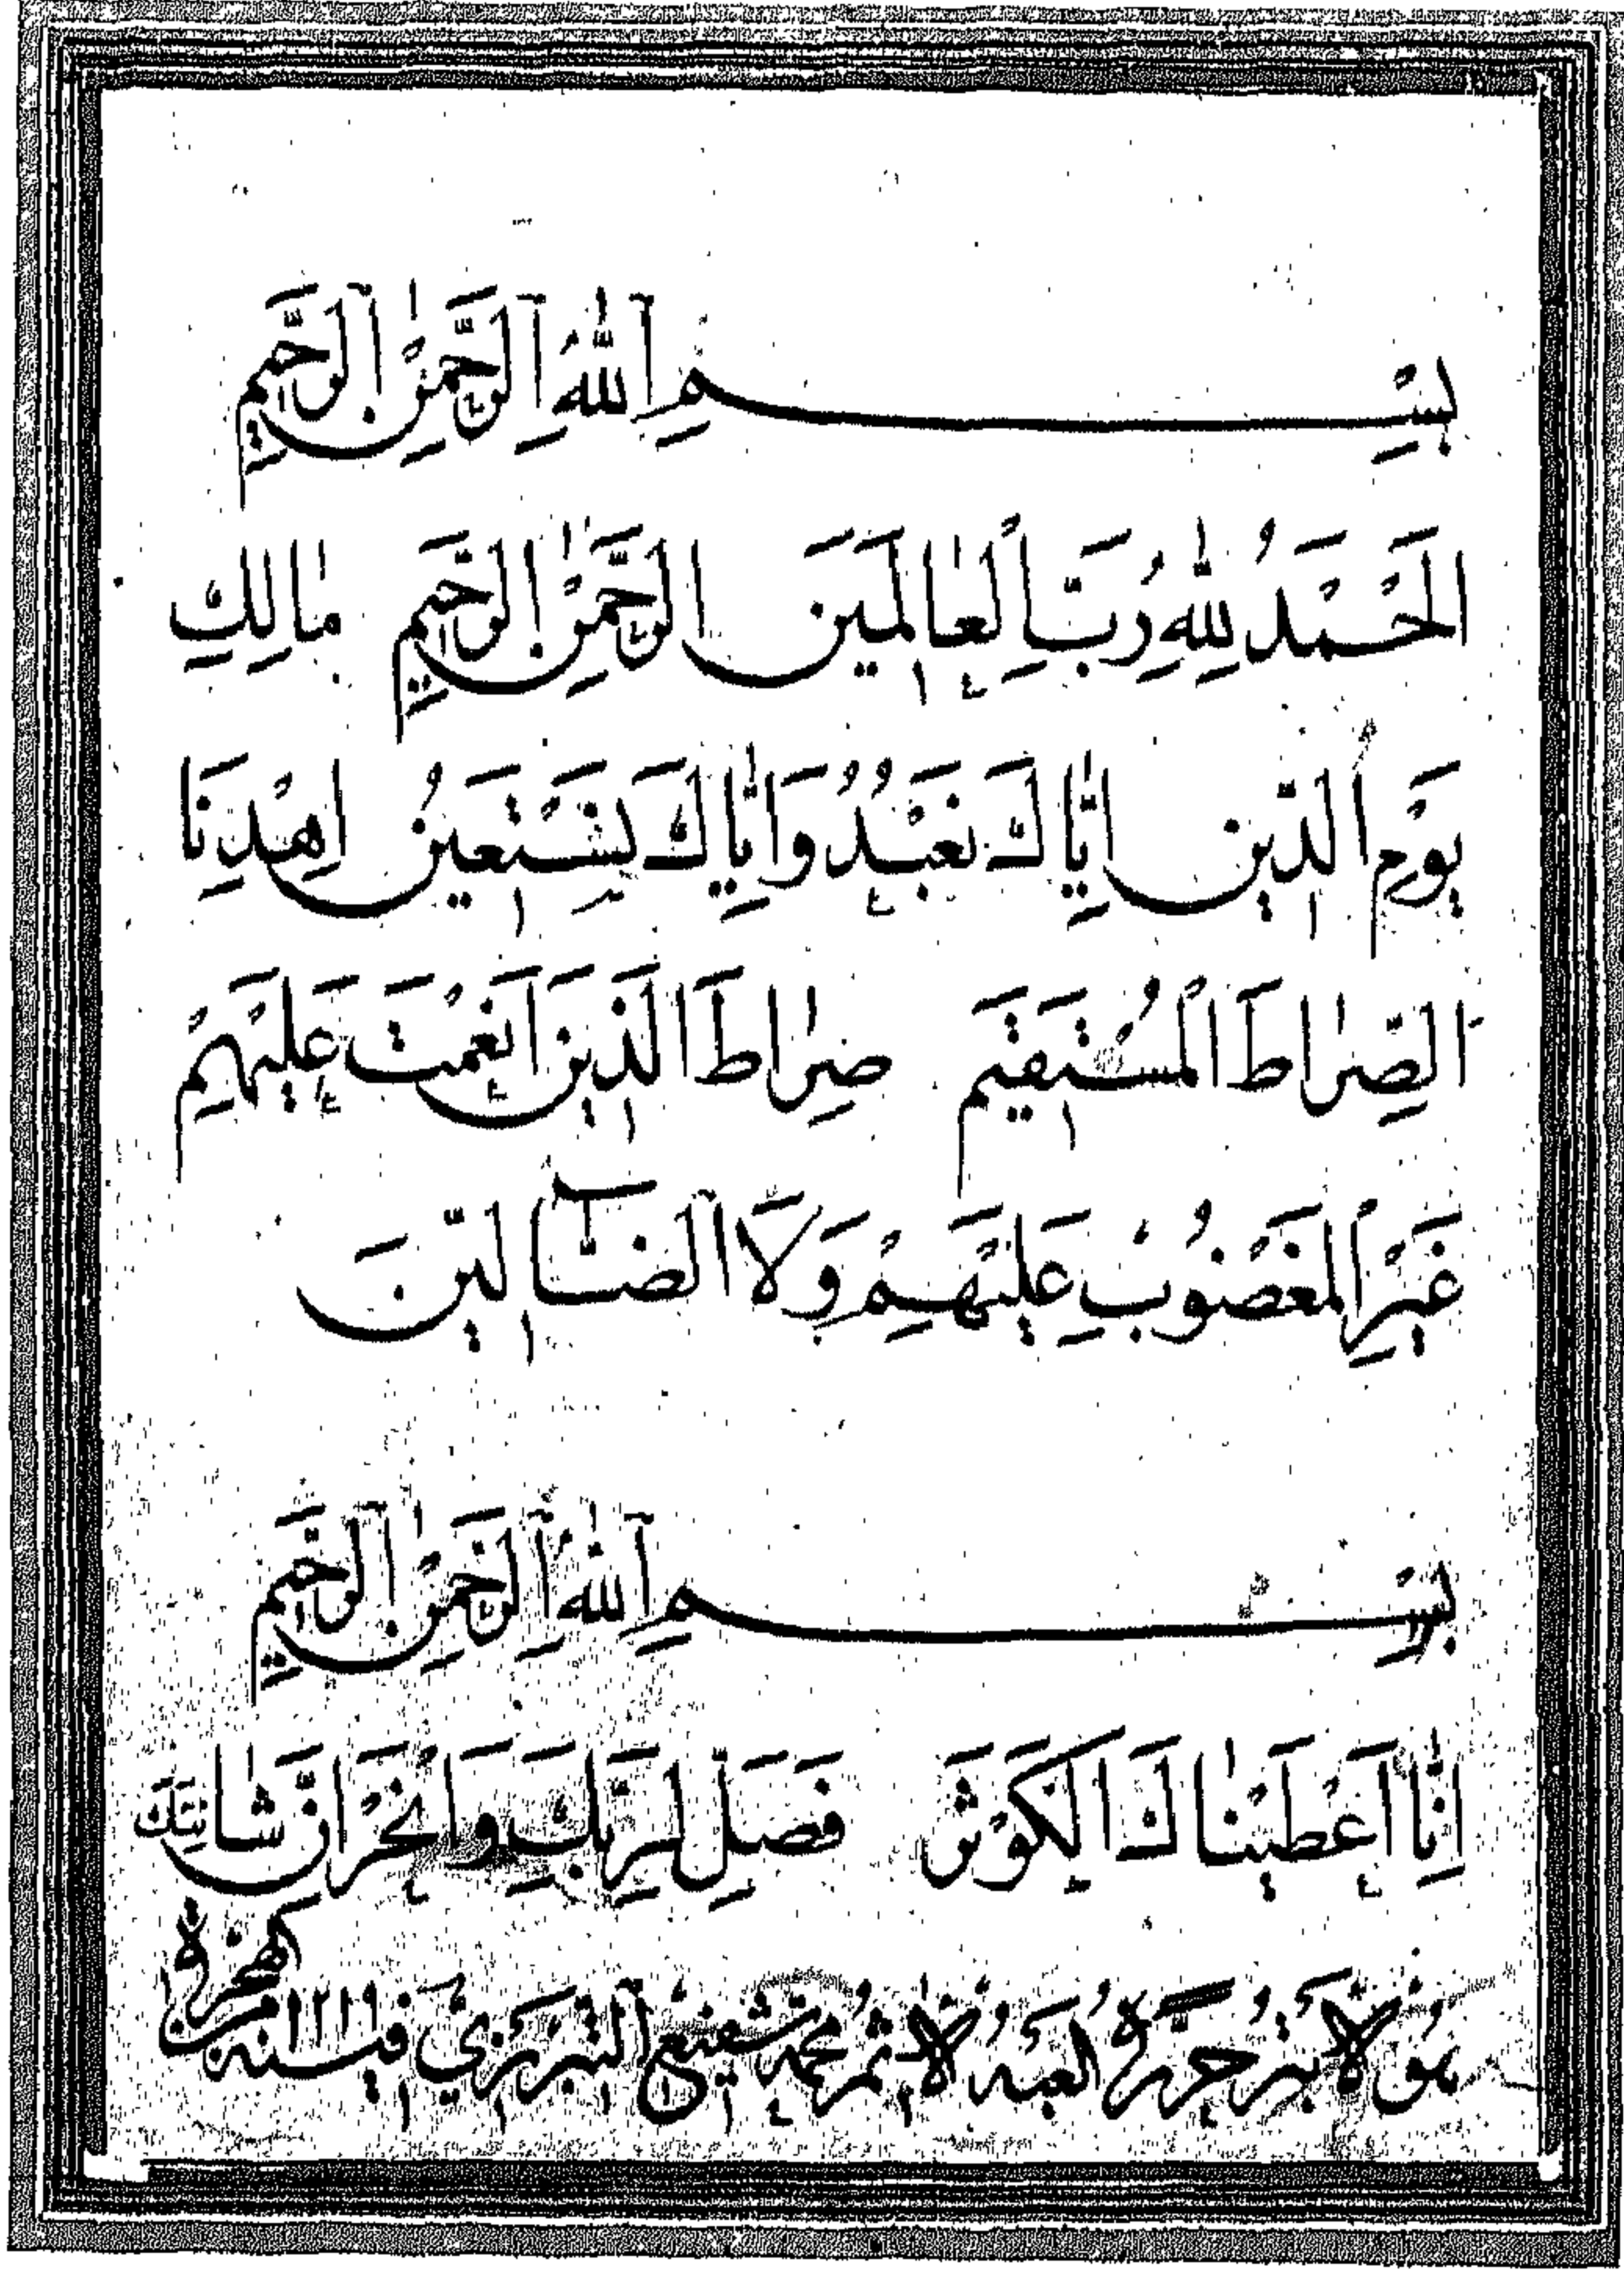 بِسْمِ اللهِ الرَّحْمٰنِ الرَّحِيمِ
الْحَمْدُ لِلّٰهِ رَبِّ الْعٰالَمِينَ الرَّحْمٰنِ الرَّحِيمِ مٰالِكِ
يَوْمِ الدِّينِ اِيّٰاكَ نَعْبُدُ وَاِيّٰاكَ نَسْتَعِينُ اِهْدِنَا
الصِّرٰاطَ الْمُسْتَقِيمَ صِرٰاطَ الَّذِينَ اَنْعَمْتَ عَلَيْهِمْ
غَيْرِ الْمَغْضُوبِ عَلَيْهِمْ وَلَا الضَّآلِّينَ
بِسْمِ اللهِ الرَّحْمٰنِ الرَّحِيمِ
اِنّٰا اَعْطَيْنٰاكَ الْكَوْثَرَ فَصَلِّ لِرَبِّكَ وَانْحَرْ اِنَّ شٰانِئَكَ
هُوَ الْاَبْتَرُ حَرَّرَهُ الْعَبْدُ الْاٰثِمُ مُحَمَّد شَفِيع التَّبْرِيزِي فِي سَنَة ١٢١٩ مِنَ الْهِجْرَة